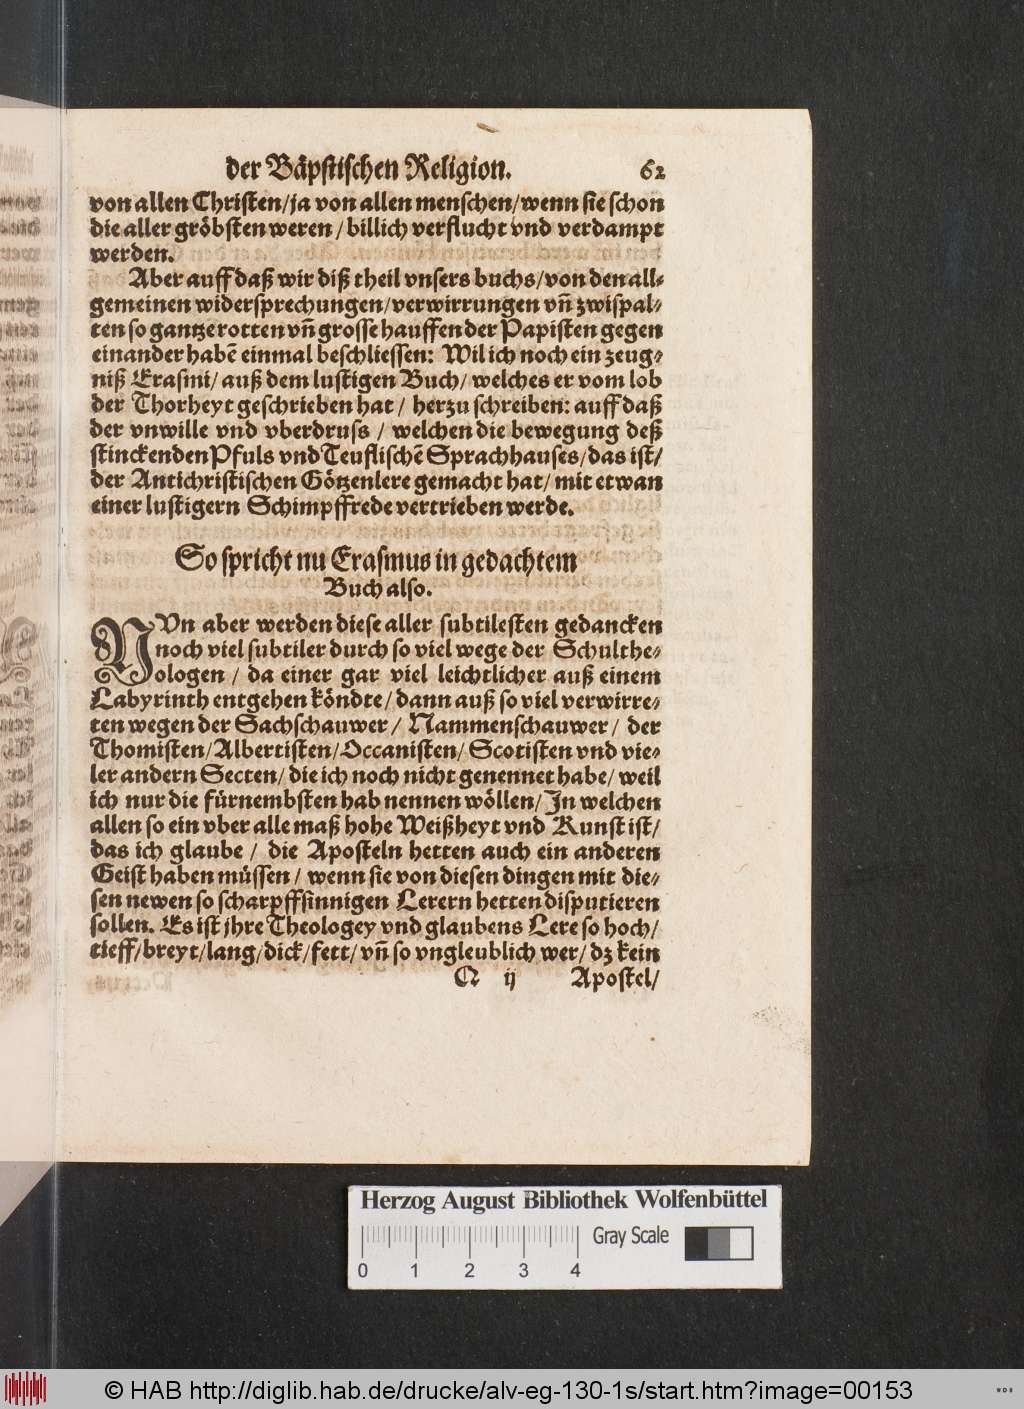 der Bäpstischen Religion. 62
von allen Christen/ja von allen menschen/wenn sie schon
die aller gröbsten weren / billich verflucht vnd verdampt
werden.
Aber auff daß wir diß theil vnsers buchs/von den all⸗
gemeinen widersprechungen/verwirrungen vñ zwispal⸗
ten so gantze rotten vñ grosse hauffen der Papisten gegen
einander habẽ einmal beschliessen: Wil ich noch ein zeug⸗
niß Erasmi/ auß dem lustigen Buch/ welches er vom lob
der Thorheyt geschrieben hat / herzu schreiben: auff daß
der vnwille vnd vberdruss / welchen die bewegung deß
stinckenden Pfuls vnd Teuflischẽ Sprachhauses/das ist/
der Antichristischen Götzenlere gemacht hat/ mit etwan
einer lustigern Schimpffrede vertrieben werde.
So spricht nu Erasmus in gedachtem
Buch also.
NVn aber werden diese aller subtilesten gedancken
noch viel subtiler durch so viel wege der Schulthe⸗
ologen / da einer gar viel leichtlicher auß einem
Labyrinth entgehen köndte/ dann auß so viel verwirre⸗
ten wegen der Sachschauwer / Nammenschauwer / der
Thomisten/Albertisten/Occanisten/ Scotisten vnd vie⸗
ler andern Secten/ die ich noch nicht genennet habe/ weil
ich nur die fürnembsten hab nennen wöllen/ In welchen
allen so ein vber alle maß hohe Weißheyt vnd Kunst ist/
das ich glaube / die Aposteln hetten auch ein anderen
Geist haben müssen / wenn sie von diesen dingen mit die⸗
sen newen so scharpffsinnigen Lerern hetten disputieren
sollen. Es ist jhre Theologey vnd glaubens Lere so hoch/
tieff/breyt/lang/dick/fett/ vñ so vngleublich wer/ dz kein
Q ij Apostel/
Herzog August Bibliothek Wolfenbüttel
Gray Scale
0 1 2 3 4
© HAB http://diglib.hab.de/drucke/alv-eg-130-1s/start.htm?image=00153